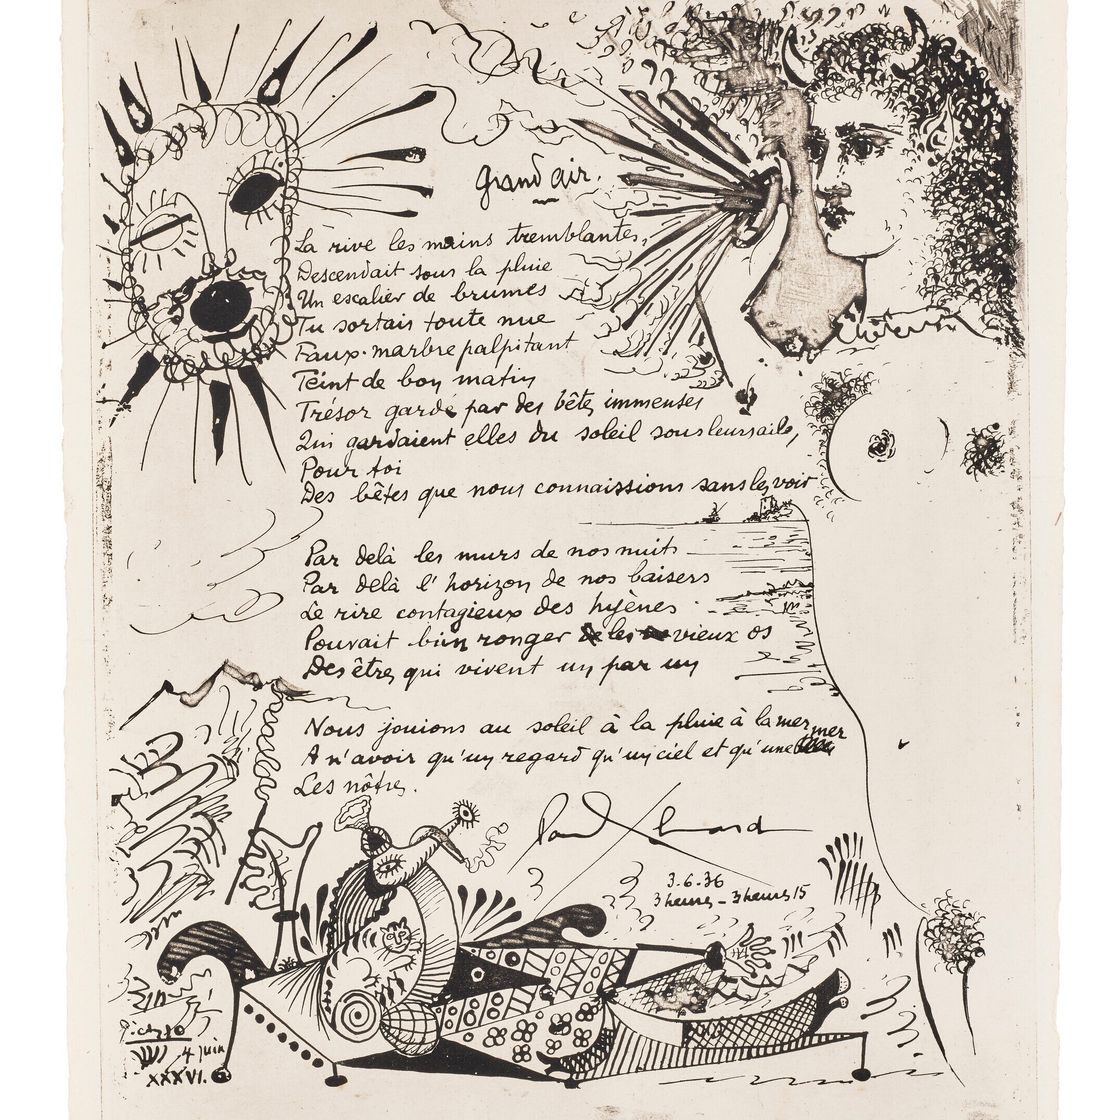 Grand air.
La rive les mains tremblantes,
Descendait sous la pluie
Un escalier de brumes
Tu sortais toute nue
Faux-marbre palpitant
Teint de bon matin
Trésor gardé par des bêtes immenses
Qui gardaient elles du soleil sous leurs ailes,
Pour toi
Des bêtes que nous connaissions sans les voir
Par delà les murs de nos nuits
Par delà l'horizon de nos baisers
Le rire contagieux des hyènes
Pouvait bien ronger les vieux os
Des êtres qui vivent un par un
Nous jouions au soleil à la pluie à la mer
A n'avoir qu'un regard qu'un ciel et qu'une mer
Les nôtres.
Paul Eluard
3.6.36
3 heures - 3 heures 15
Picasso
4 juin
XXXVI.